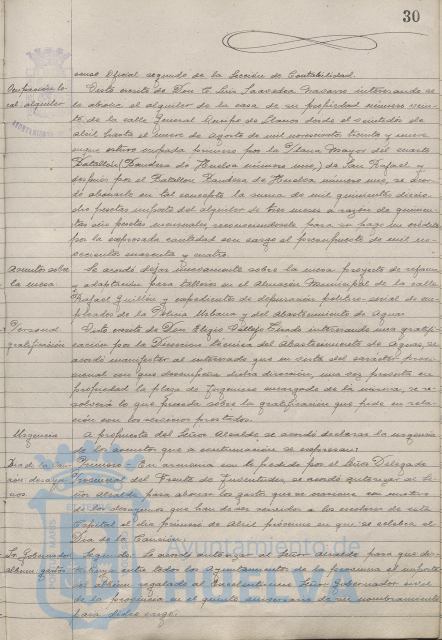 30
cense Oficial segundo de la Sección de Contabilidad.
Visto escrito de Don Luis Saavedra Navarro interesando se
le abone el alquiler de la casa de su propiedad número
de la calle General Queipo de Llano desde el veintidós de
abril hasta el nueve de Agosto de mil novecientos treinta y nueve
que estuvo ocupada primero por la Plana Mayor del cuarto
Batallón (Bandera de Huelva número uno,) de San Rafael y
después por el Batallón Bandera de Huelva número uno, se acor-
dó abonarle en tal concepto la suma de mil quinientas
pesetas importe del alquiler de tres meses a razón de quinien-
tas pesetas mensuales, reconociéndosele para su pago un crédito
por la expresada cantidad con cargo al presupuesto de mil no-
vecientos cuarenta y cuatro.
Asuntos sobre
la mesa
Se acordó dejar nuevamente sobre la mesa proyecto de reforma
y adaptación para talleres en el Almacén Municipal de la calle
Rafael Guillén y expedientes de depuración político-social de em-
pleados de la Policía Urbana y del Abastecimiento de Aguas.
Personal
gratificación
Visto escrito de Don Eligio Tirado interesando una gratifi-
cación por la Dirección técnica del Abastecimiento de Aguas, se
acordó manifestar al interesado que en vista del carácter provi-
sional con que desempeña dicha dirección, una vez provista en
propiedad la plaza de Ingeniero encargado de la misma, se re-
solverá lo que proceda sobre la gratificación que pide en rela-
ción con los servicios prestados.
Urgencia
A propuesta del Señor Alcalde, se acordó declarar la urgencia
de los asuntos que a continuación se expresan:
Día de la Can-
ción desayu-
nos
Primero: En armonía con lo pedido por el Señor Delegado
Provincial del Frente de Juventudes se acordó autorizar al Se-
ñor Alcalde para abonar los gastos que se ocasionen con motivo
de los desayunos que han de ser servidos a los escolares de esta
Capital el día primero de Abril próximo en que se celebra el
Día de la Canción.
Sr. Gobernador
álbum gastos
Segundo: Se acordó autorizar al Señor Alcalde para que
entre todos los Ayuntamientos de la provincia el importe
del álbum regalado al Excelentísimo Señor Gobernador civil
de la provincia en el quinto aniversario de su nombramiento
para dicho cargo.
ayuntamiento de
HUELVA